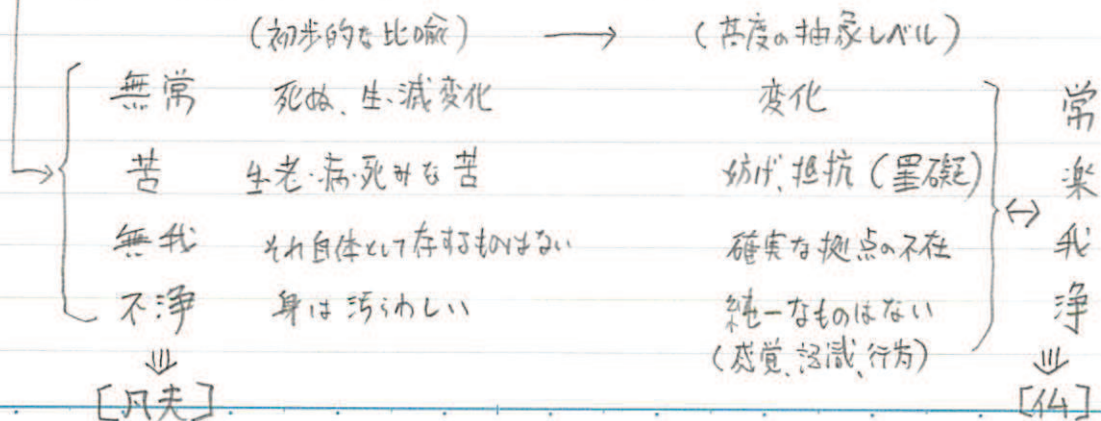 (初歩的な比喩) → (高度の抽象レベル)
無常 死ぬ、生・滅変化 変化 常
苦 生老・病・死みな苦 妨げ、抵抗(罣礙) ↔ 楽
無我 それ自体として存するものはない 確実な拠点の不在 我
不浄 身は汚らわしい 純一なものはない 浄
(感覚、認識、行為)
⇓ ⇓
[凡夫] [仏]